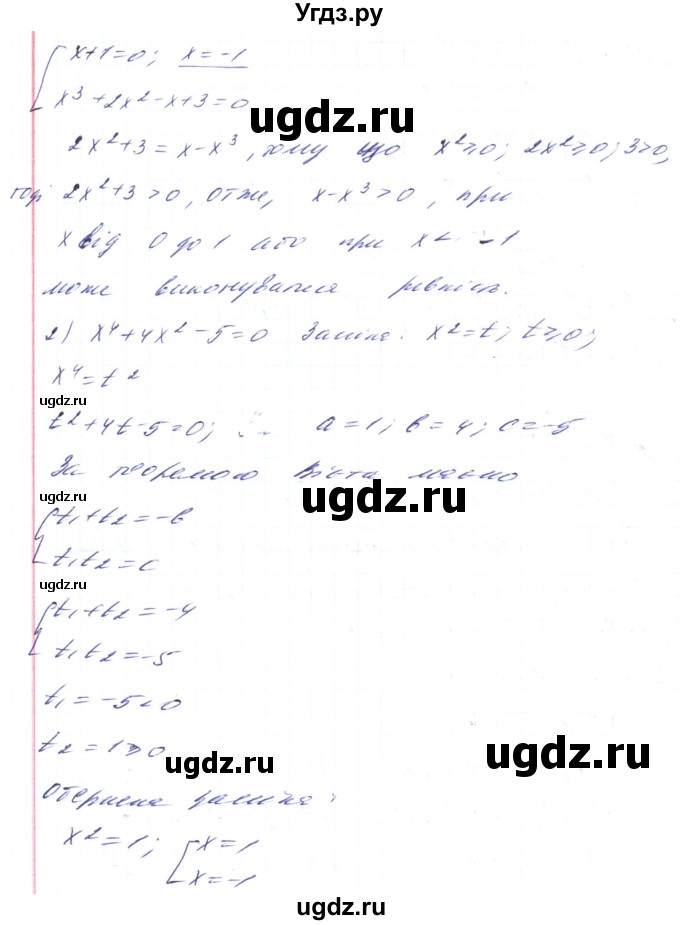 Угдз.ру
[ x+1=0; x=-1
x³+2x²-x+3=0
ugdz.ru
2x²+3=x-x³, тому що x²≥0; 2x²≥0; 3>0,
тоді 2x²+3>0, отже, x-x³>0, при
x від 0 до 1 або при x < -1
може виконуватися рівність.
ugdz.ru
2) x⁴+4x²-5=0 Заміна: x²=t; t≥0;
x⁴=t²
ugdz.ru
t²+4t-5=0; a=1; b=4; c=-5
За теоремою Вієта маємо
ugdz.ru
ugdz.ru
{ t₁+t₂=-b
t₁t₂=c
ugdz.ru
{ t₁+t₂=-4
t₁t₂=-5
t₁=-5<0
t₂=1>0
ugdz.ru
ugdz.ru
Обернена заміна:
x²=1; [ x=1
x=-1
ugdz.ru